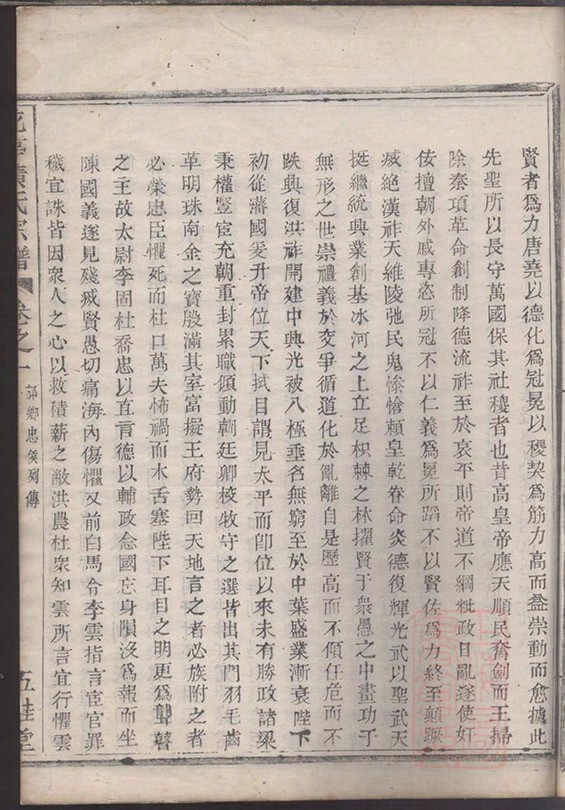 賢者爲力唐堯以德化爲冠冕以稷契爲筋力高而益崇動而愈據此
先聖所以長守萬國保其社稷者也昔高皇帝應天順民奮劍而王掃
除秦項革命創制降德流祚至於哀平則帝道不綱秕政日亂遂使奸
佞擅朝外戚專恣所冠不以仁義爲冕所蹈不以賢佐爲力終至顛蹶
滅絕漢祚天維陵弛民鬼慘愴賴皇乾眷命炎德復輝光武以聖武天
挺繼統興業創基冰河之上立足枳棘之林擢賢于衆愚之中畫功于
無形之世崇禮義於交爭循道化於亂離自是歷高而不傾任危而不
跌興復洪祚開建中興光被八極垂名無窮至於中葉盛業漸衰陛下
初從藩國爰升帝位天下拭目謂見太平而卽位以來未有勝政諸梁
秉權豎宦充朝重封累職傾動朝廷卿校牧守之選皆出其門羽毛齒
革明珠南金之寶殷滿其室富擬王府勢回天地言之者必族附之者
必榮忠臣懼死而杜口萬夫怖禍而木舌塞陛下耳目之明更爲聾瞽
之主故太尉李固杜喬忠以直言德以輔政念國忘身隕沒爲報而坐
陳國義遂見殘滅賢愚切痛海內傷懼又前白馬令李雲指言宦官罪
穢宜誅皆因衆人之心以救積薪之敝洪農杜衆知雲所言宜行懼雲
氏宗譜 卷之一 鄉忠侯列傳 五桂堂